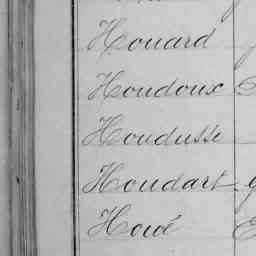 Houard
Houdoux
Houdusse
Houdart
Houé